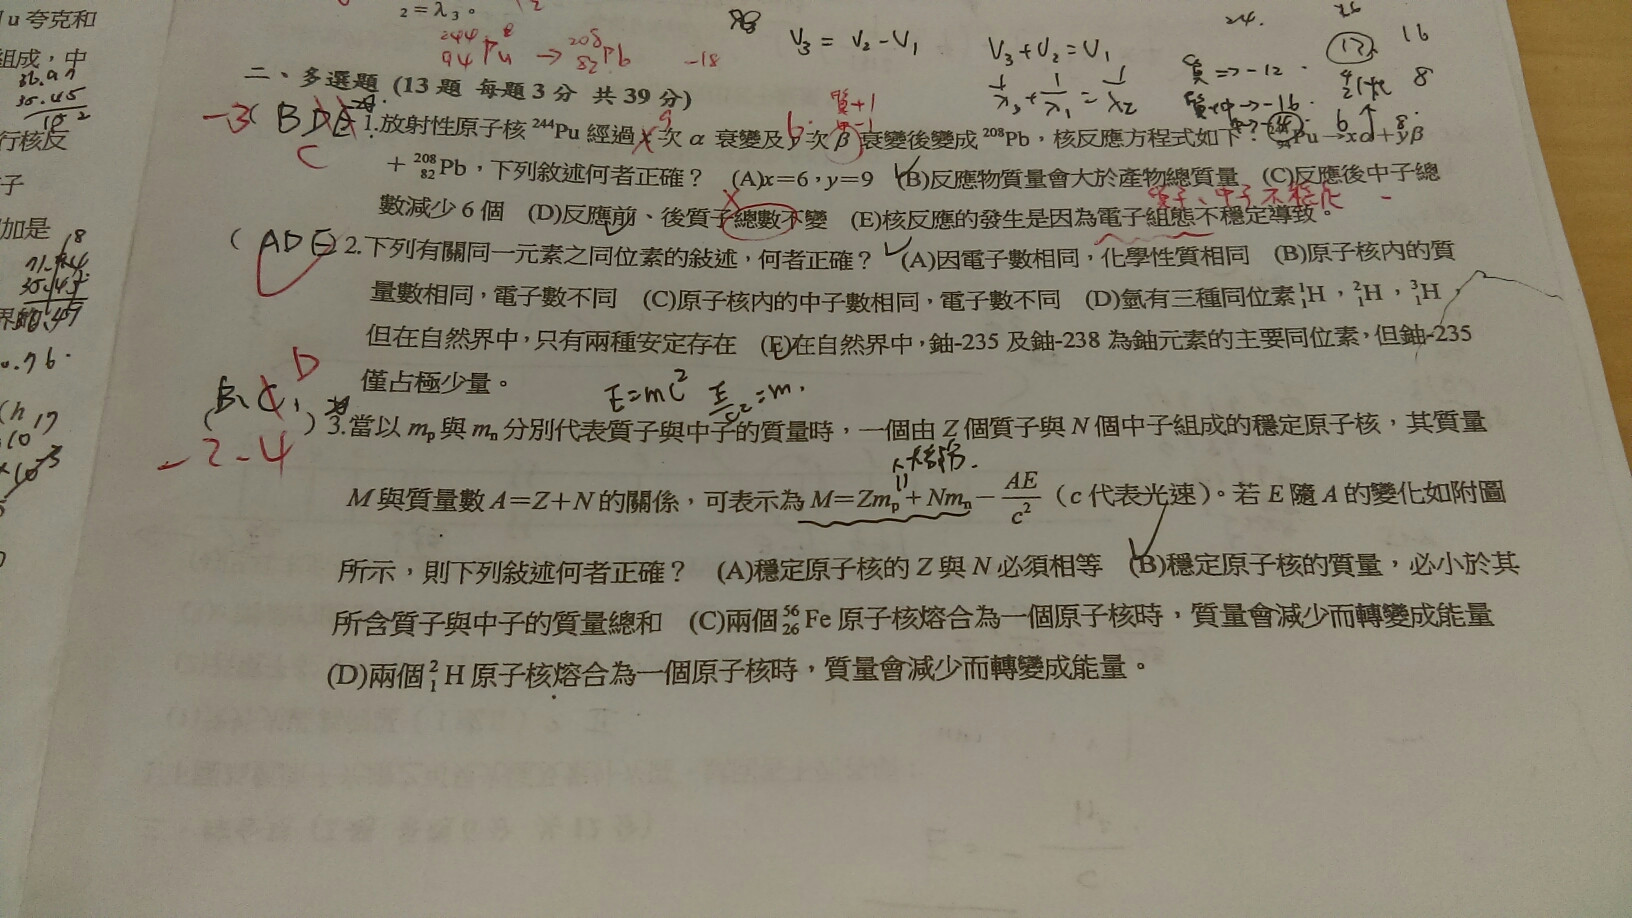 u 夸克和
組成，中
行核反
子
加是
₂＝λ₃。
²⁴⁴₉₄Pu → ²⁰⁸₈₂Pb -18
V₃ = V₂ - V₁
V₃ + V₂ = V₁
1/λ₃ + 1/λ₁ = 1/λ₂
質 => -12
16
8
二、多選題 (13 題 每題 3 分 共 39 分)
質+1
-3 ( BDE C
1.放射性原子核 ²⁴⁴Pu 經過 x 次 α 衰變及 y 次 β 衰變後變成 ²⁰⁸Pb，核反應方程式如下：Pu→xα＋yβ
＋ ²⁰⁸₈₂Pb，下列敘述何者正確？ (A)x＝6，y＝9 (B)反應物質量會大於產物總質量 (C)反應後中子總
數減少 6 個 (D)反應前、後質子總數不變 (E)核反應的發生是因為電子組態不穩定導致。
( ADE ) 2.下列有關同一元素之同位素的敍述，何者正確？ (A)因電子數相同，化學性質相同 (B)原子核內的質
量數相同，電子數不同 (C)原子核內的中子數相同，電子數不同 (D)氫有三種同位素 ¹₁H，²₁H，³₁H，
但在自然界中，只有兩種安定存在 (E)在自然界中，鈾-235 及鈾-238 為鈾元素的主要同位素，但鈾-235
僅占極少量。
E=mc² E/c²=m
( B、C, D ) 3.當以 mₚ 與 mₙ 分別代表質子與中子的質量時，一個由 Z 個質子與 N 個中子組成的穩定原子核，其質量
-2-4
M 與質量數 A＝Z＋N 的關係，可表示為 M＝Zmₚ＋Nmₙ－AE/c²（c 代表光速）。若 E 隨 A 的變化如附圖
所示，則下列敍述何者正確？ (A)穩定原子核的 Z 與 N 必須相等 (B)穩定原子核的質量，必小於其
所含質子與中子的質量總和 (C)兩個 ⁵⁶₂₆Fe 原子核熔合為一個原子核時，質量會減少而轉變成能量
(D)兩個 ²₁H 原子核熔合為一個原子核時，質量會減少而轉變成能量。